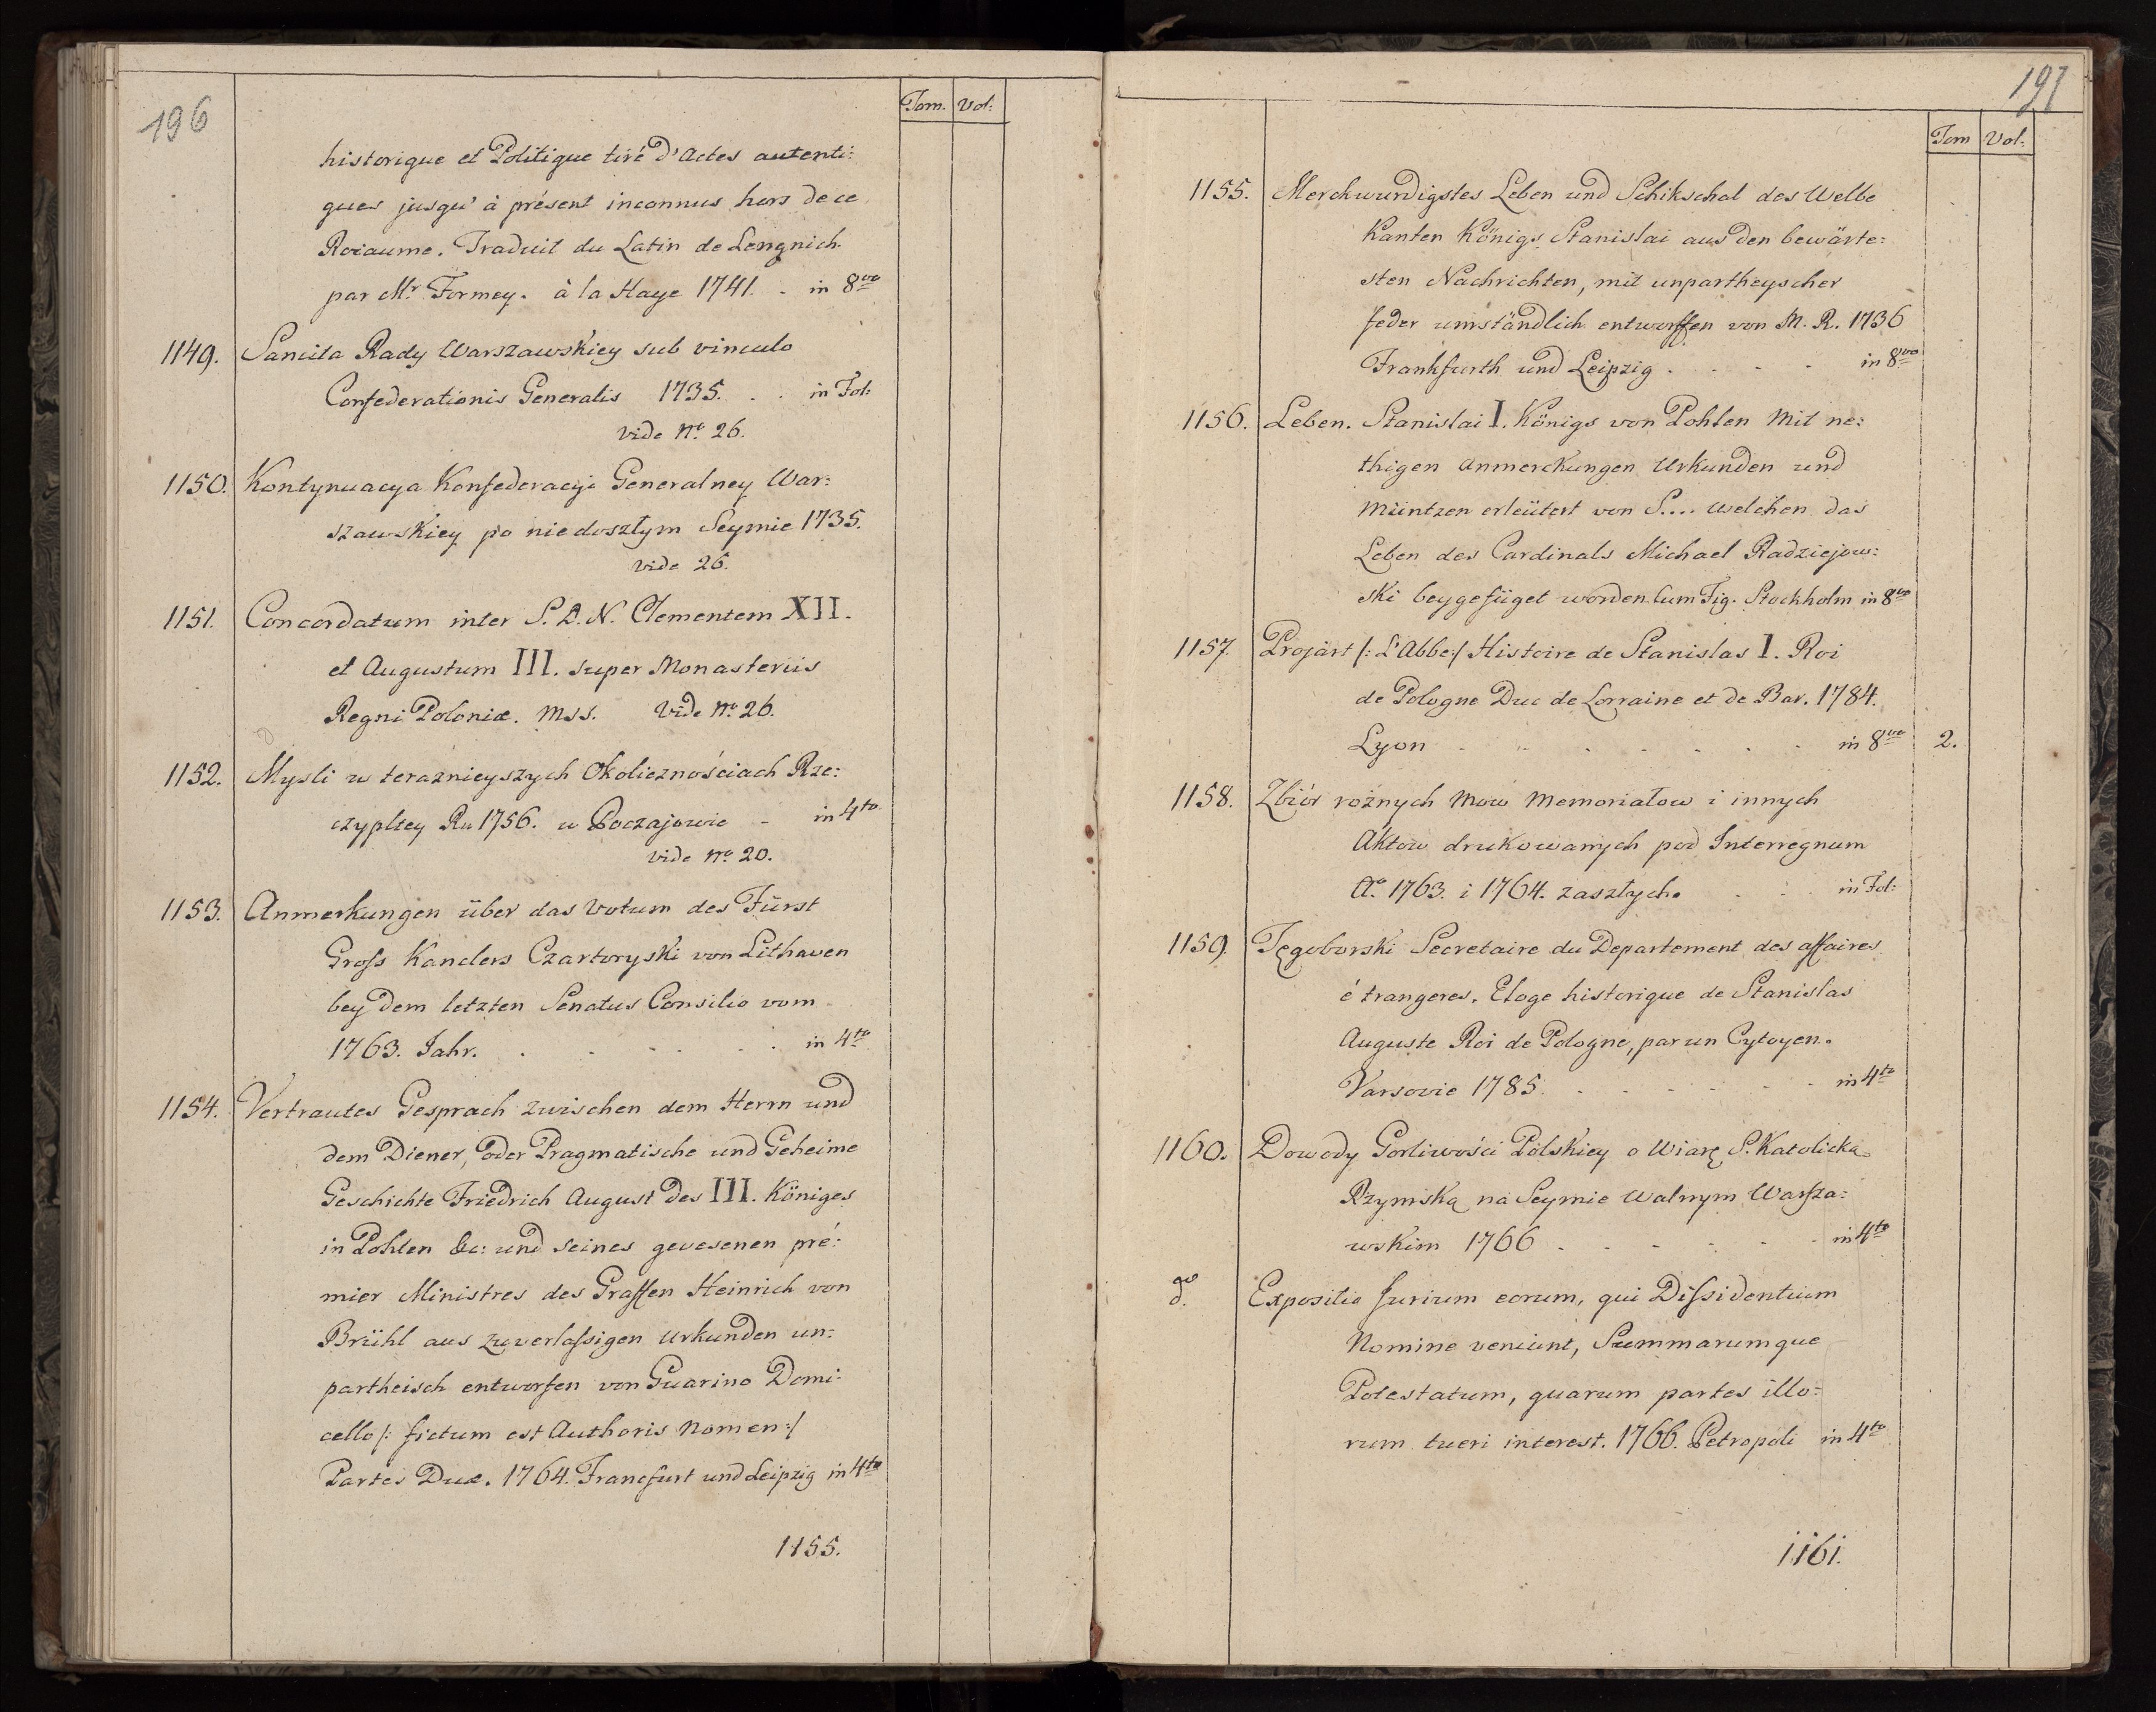 196
Tom. Vol:
historique et Politique tiré d'Actes autenti:
ques jusqu' à présent inconnus hors de ce
Roiaume. Traduit du Latin de Lengnich
par Mr Formey. à la Haye 1741. - in 8vo
1149. Sancita Rady Warszawskiey sub vinculo
Confederationis Generalis 1735. . . in Fol:
vide No. 26.
1150. Kontynuacya Konfederacyi Generalney War:
szawskiey po niedoszłym Seymie 1735.
vide 26.
1151. Concordatum inter S. D. N. Clementem XII.
et Augustum III. super Monasteriis
Regni Poloniæ. Mss. Vide No. 26.
1152. Mysli w teraznieyszych Okolicznościach Rze:
czypltey Ru 1756. w Poczajowie - in 4to
vide No. 20.
1153. Anmerkungen über das Votum des Fürst
Gross Kanclers Czartoryski von Lithauen
bey dem letzten Senatus Consilio vom
1763. Jahr. . . . . . in 4to
1154. Vertrautes Gesprach zwischen dem Herrn und
dem Diener, oder Pragmatische und Geheime
Geschichte Friedrich August des III. Königes
in Pohlen &c: und seines gevesenen pré:
mier Ministres des Graffen Heinrich von
Brühl aus zuverlassigen Urkunden un:
partheisch entworfen von Guarino Domi:
cello /: fictum est Authoris Nomen :/
Partes Duæ. 1764. Francfurt und Leipzig in 4to
1155.
197
Tom Vol:
1155. Merckwurdigstes Leben und Schikschal des Welbe
kanten Königs Stanislai aus den bewärte:
sten Nachrichten, mit unpartheyscher
Feder umständlich entworffen von M. R. 1736
Frankfurth und Leipzig . . . . in 8vo
1156. Leben. Stanislai I. Königs von Pohlen Mit ne:
thigen Anmerckungen Urkunden und
Müntzen erleütert von S.... Welchen das
Leben des Cardinals Michael Radziejow:
ski beygefüget worden. Cum Fig. Stockholm in 8vo
1157. Projart /: L'Abbe :/ Histoire de Stanislas I. Roi
de Pologne Duc de Lorraine et de Bar. 1784.
Lyon - . . . . . in 8vo 2.
1158. Zbiór rożnych Mow Memoriałow i innych
Aktow drukowanych pod Interregnum
Ao. 1763. i 1764. zaszłych. . . in Fol:
1159. Tęgoborski Secretaire du Departement des affaires
étrangeres. Eloge historique de Stanislas
Auguste Roi de Pologne, par un Cytoyen.
Varsovie 1785. . . . . . in 4to
1160. Dowody Gorliwości Polskiey o Wiarę S. Katolicką
Rzymską na Seymie Walnym Warsza:
wskim 1766 . . . . . in 4to
Expositio Jurium eorum, qui Dissidentium
Nomine veniunt, Summarumque
Potestatum, quarum partes illo:
rum tueri interest. 1766. Petropoli in 4to
1161.